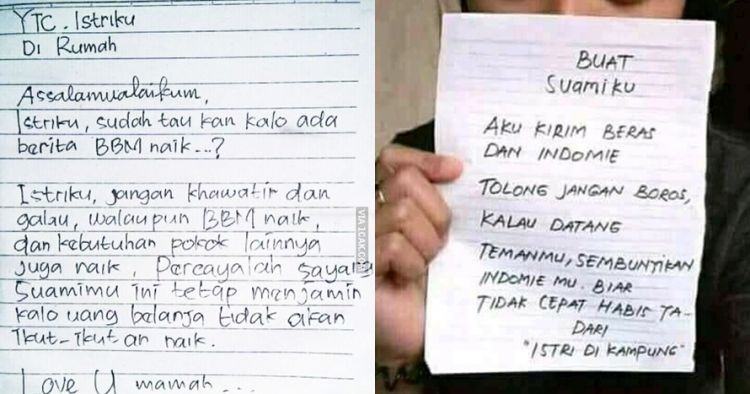 YTC. Istriku
Di Rumah
Assalamualaikum,
Istriku, sudah tau kan kalo ada
berita BBM naik...?
Istriku, jangan khawatir dan
galau, walaupun BBM naik,
dan kebutuhan pokok lainnya
juga naik, Percayalah sayang
Suamimu ini tetap menjamin
kalo uang belanja tidak akan
ikut-ikutan naik.
Love U mamah...
VIA 1CAK.COM
BUAT
Suamiku
AKU KIRIM BERAS
DAN INDOMIE
TOLONG JANGAN BOROS,
KALAU DATANG
TEMANMU, SEMBUNYIKAN
INDOMIE MU. BIAR
TIDAK CEPAT HABIS TA-
DARI
"ISTRI DI KAMPUNG"